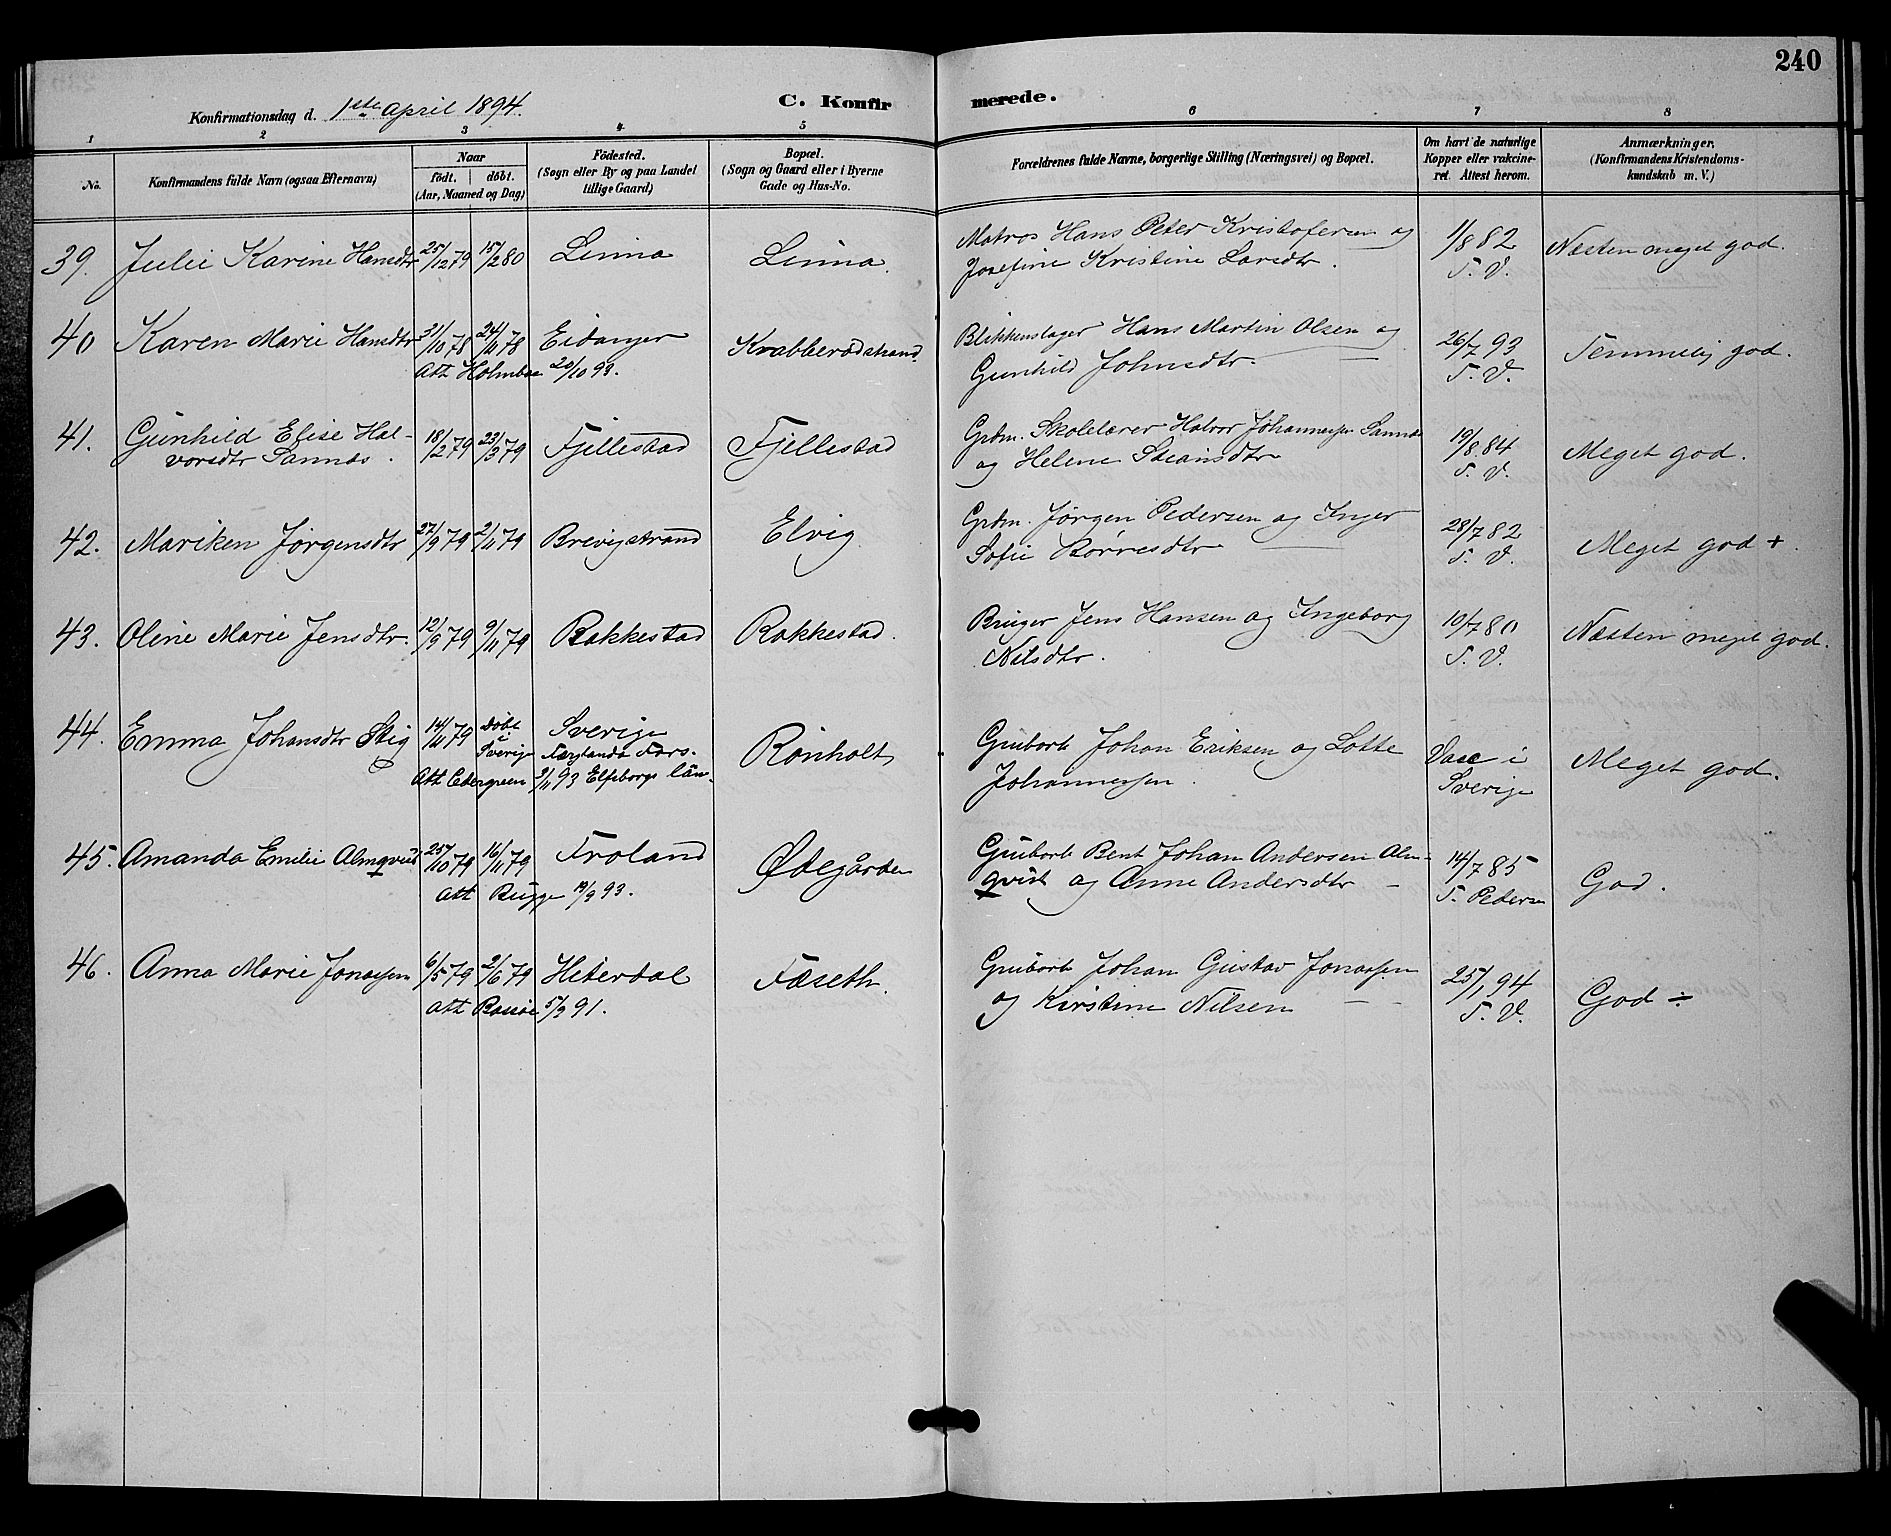 240
Konfirmationsdag d. 1ste April 1894.
C. Konfirmerede.
1 2 3 4 5 6 7 8
No.
Konfirmandens fulde Navn (ogsaa Efternavn)
Naar
födt. döbt.
(Aar, Maaned og Dag)
Födested.
(Sogn eller By og paa Landet
tillige Gaard)
Bopæl.
(Sogn og Gaard eller i Byerne
Gade og Hus-No.
Forældrenes fulde Navne, borgerlige Stilling (Næringsvei) og Bopæl.
Om havt de naturlige
Kopper eller vakcine-
ret. Attest herom.
Anmærkninger.
(Konfirmandens Kristendoms-
kundskab m. V.)
39. Julie Karine Hansdtr 25/12 79 15/2 80 Linna Linna. Matros Hans Peter Kristofersen og 1/8 82 Næsten meget god.
Josefine Kristine Larsdtr. T. V.
40 Karen Marie Hansdtr 31/10 78 24/11 78 Eidanger Krabberødstrand. Blikkenslager Hans Martin Olsen og 26/7 93 Temmelig god.
Att Holmboe 20/10 93. Gunhild Johnsdtr. T. V.
41. Gunhild Elise Hal- 18/2 79 23/3 79 Fjellestad Fjellestad Grdm. Skolelærer Halvor Johannesen Sannæs 19/8 84 Meget god.
vorsdtr Sannæs. og Helene Steansdtr T. V.
42. Mariken Jørgensdtr 27/9 79 2/11 79 Brevigstrand Elvig Grdm. Jørgen Pedersen og Inger 28/7 82 Meget god +.
Sofie Børresdtr T. V.
43. Oline Marie Jensdtr. 12/9 79 9/11 79 Rakkestad Rakkestad. Bruger Jens Hansen og Ingeborg 10/7 80 Næsten meget god.
Nilsdtr. T. V.
44. Emma Johansdtr Stig 14/11 79 Døbt i Sverige Sverige Rönholt Grubearb Johan Eriksen og Lotte Vacc i Meget god.
Færglanda Fors.
Att Cedergreen 3/11 93 Elfsborgs län. Johannesen. Sverige
45. Amanda Emilie Almqvist 25/10 79 16/11 79 Froland Ødegården Grubarb Bent Johan Andersen Alm- 14/7 85 God.
Att Bugge 19/9 93. qvist og Anne Andersdtr T. Pedersen
46. Anna Marie Jonassen 6/5 79 2/6 79 Hiterdal Fæseth. Grubarb Johan Gustav Jonassen 25/1 94 God ÷
Att 5/9 91. og Kirstine Nilsen T. V.